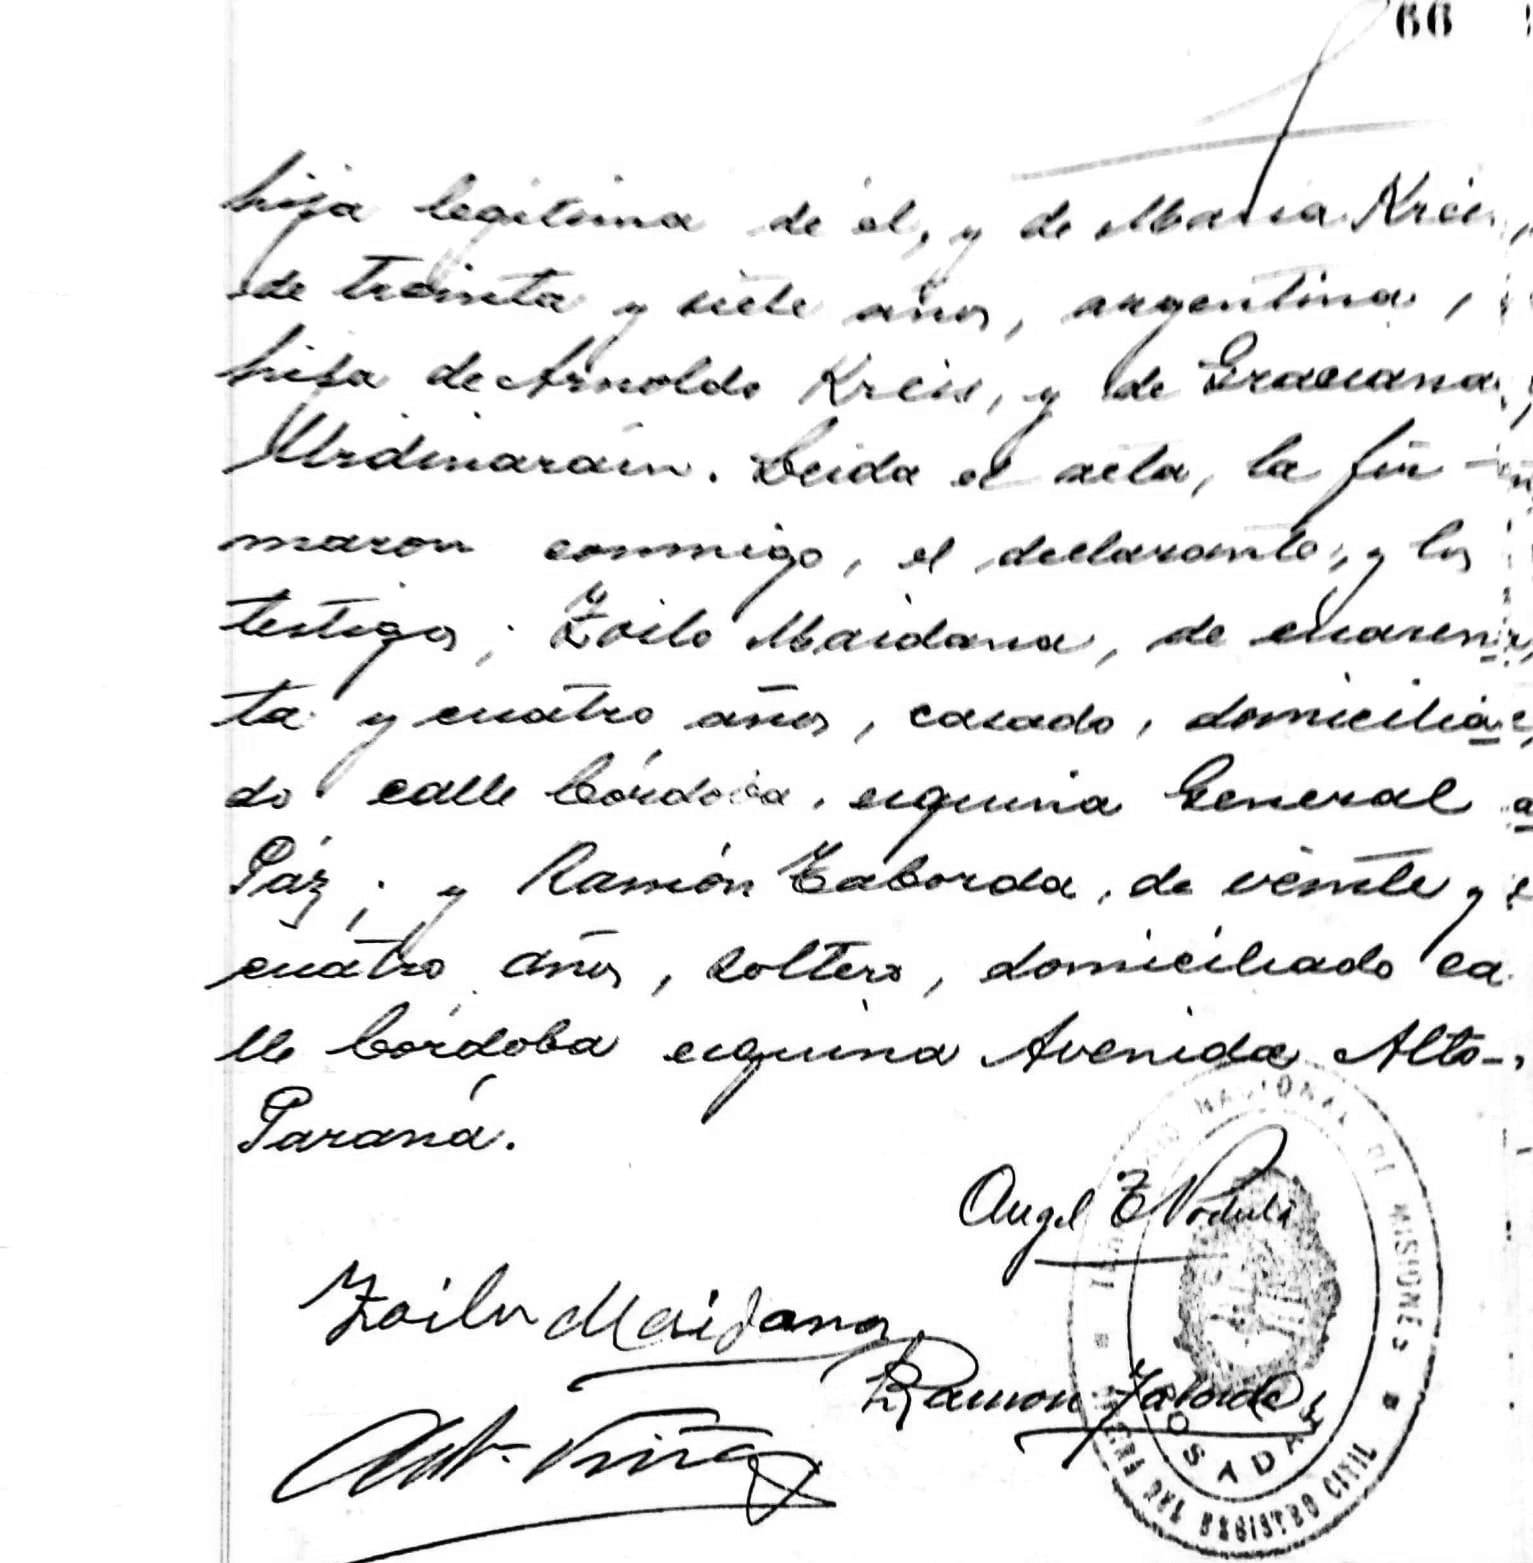 66
hija legitima de él, y de Maria Kreis,
de treinta y siete años, argentina,
hija de Arnoldo Kreis, y de Graciana
Urdinaráin. Leida el acta, la fir-
maron conmigo, el declarante, y los
testigos; Zoilo Maidana, de cuaren-
ta y cuatro años, casado, domicilia-
do calle Córdoba, esquina General
Páz; y Ramón Taborda, de veinte y
cuatro años, soltero, domiciliado ca
lle Córdoba esquina Avenida Alto-
Paraná.
Angel
Zoilo Maidana
Ramon Taborda
NACIONAL DE MISIONES
POSADAS
DEL REGISTRO CIVIL